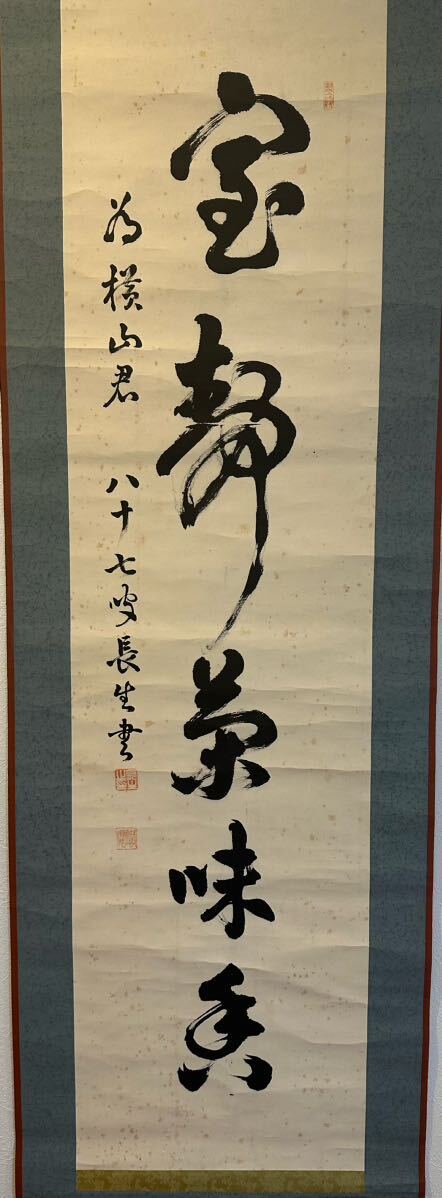 室靜茶味香
為横山君 八十七叟長生書